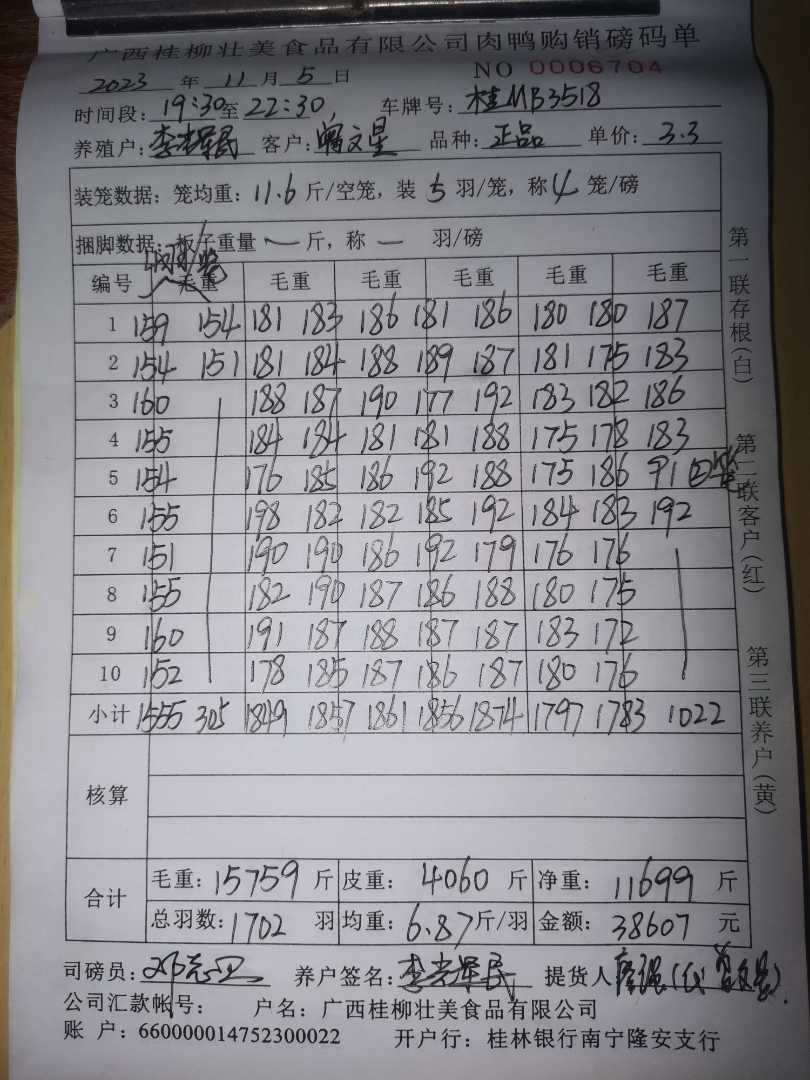 广西桂柳壮美食品有限公司肉鸭购销磅码单
2023 年 11 月 5 日 NO 0006704
时间段: 19:30 至 22:30 车牌号: 桂MB3518
养殖户: 李光军民 客户: 文星 品种: 正品 单价: 3.3
装笼数据: 笼均重: 11.6 斤/空笼, 装 5 羽/笼, 称 4 笼/磅
捆脚数据: 板子重量 一 斤, 称 一 羽/磅
编号 毛重 毛重 毛重 毛重 毛重 毛重
1 159 154 181 183 186 181 186 180 180 187
2 154 151 181 184 188 189 187 181 175 183
3 160 188 187 190 177 192 183 182 186
4 155 184 184 181 181 188 175 178 183
5 154 176 185 186 192 188 175 186 91
6 155 198 182 182 185 192 184 183 192
7 151 190 190 186 192 179 176 176
8 155 182 190 187 186 188 180 175
9 160 191 187 188 187 187 183 172
10 152 178 185 187 186 187 180 176
小计 1555 305 1849 1857 1861 1856 1874 1797 1783 1022
核算
合计
毛重: 15759 斤 皮重: 4060 斤 净重: 11699 斤
总羽数: 1702 羽 均重: 6.87 斤/羽 金额: 38607 元
司磅员: 邓志卫 养户签名: 李光军民 提货人
公司汇款帐号: 户名: 广西桂柳壮美食品有限公司
账 户: 660000014752300022 开户行: 桂林银行南宁隆安支行
第一联存根(白)
第二联客户(红)
第三联养户(黄)